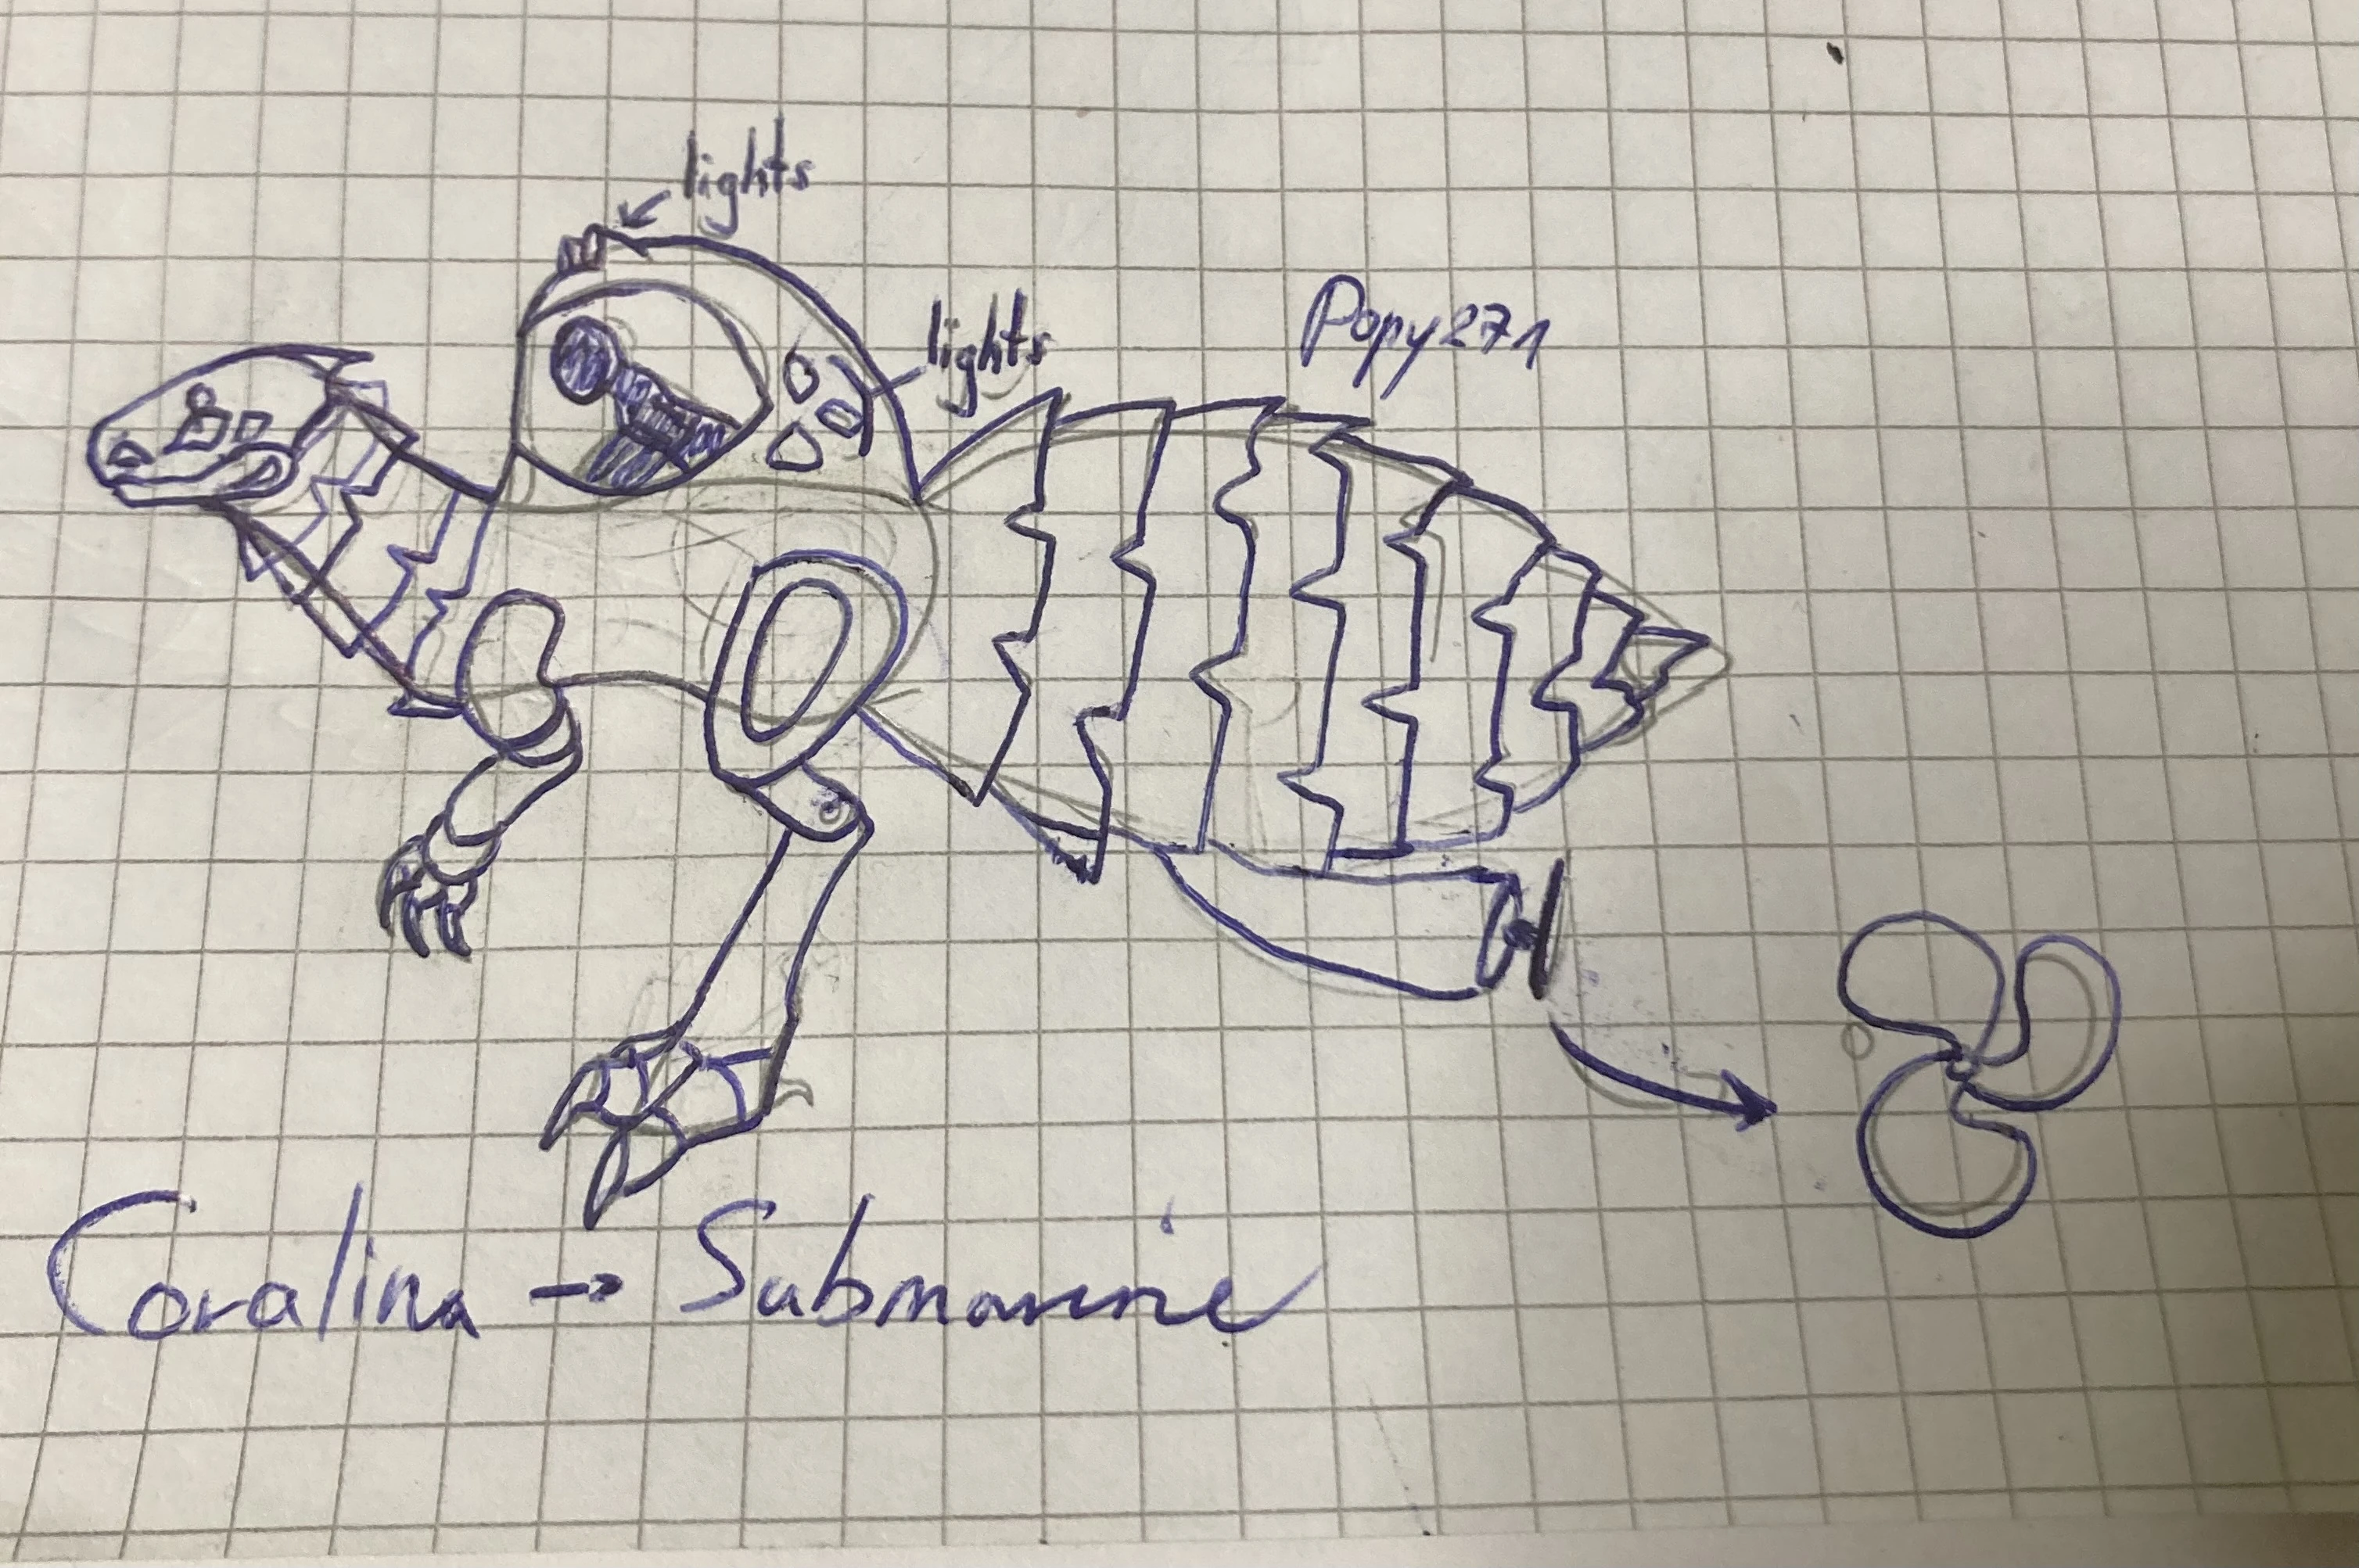 lights
lights
Popy271
Coralina → Submarine